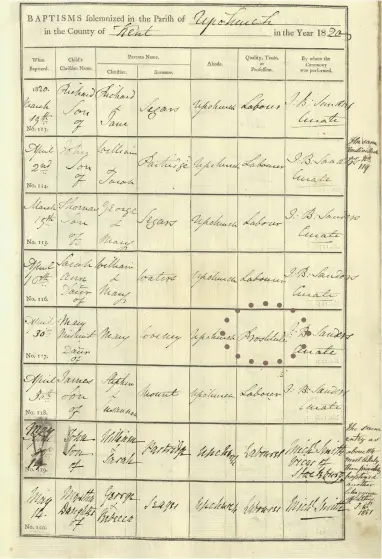 BAPTISMS solemnized in the Parish of Upchurch
in the County of Kent in the Year 1820
When Baptized.
Child's Christian Name.
Parents Name.
Christian.
Surname.
Abode.
Quality, Trade, or Profession.
By whom the Ceremony was performed.
1820.
March
19th
No. 113.
Richard
Son
of
Richard
&
Jane
Segars
Upchurch
Labour
J. B. Sanders
Curate
April
2nd
No. 114.
John
Son
of
William
&
Sarah
Partridge
Upchurch
Labourer
J. B. Sanders
Curate
March
No. 115.
Thomas
Son
of
George
&
Mary
Segars
Upchurch
Labour
J. B. Sanders
Curate
April
16th
No. 116.
Sarah
Ann
Daur
of
William
&
Mary
Waters
Upchurch
Labourer
J. B. Sanders
Curate
April
30th
No. 117.
Mary
Daur
of
Mary
Upchurch
Prostitute
J. B. Sanders
Curate
April
30th
No. 118.
James
Son
of
Stephen
&
Susannah
Mount
Upchurch
Labour
J. B. Sanders
Curate
May
John
Son
of
William
&
Sarah
Partridge
Upchurch
Labourer
Vicar of
Stockbury
May
14
No. 120.
Martha
Daughter
of
George
&
Rebecca
Upchurch
Labourer
The same
entry as
above